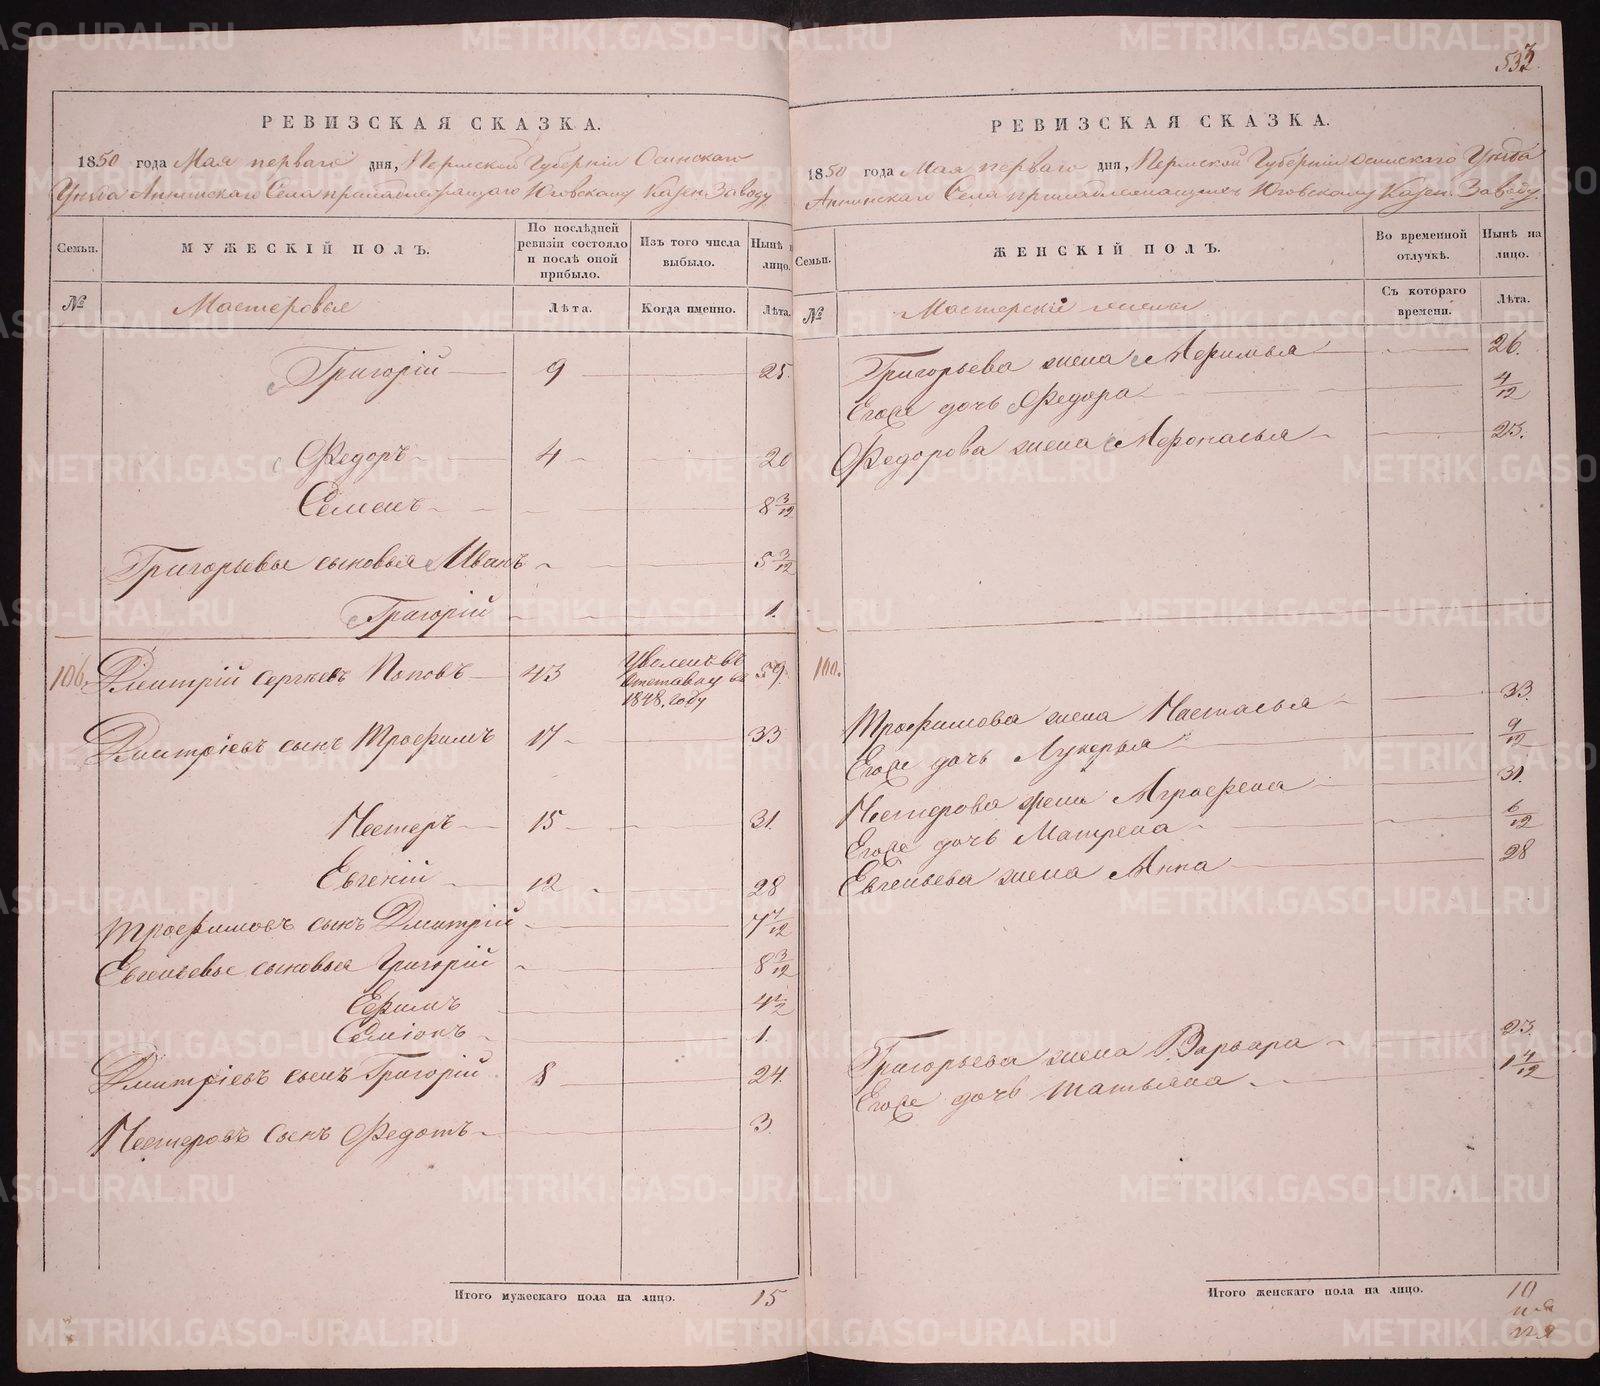 РЕВИЗСКАЯ СКАЗКА.
1850 года Мая перваго дня, Пермской Губерніи Осинскаго
Уѣзда Аннинскаго Села принадлежащаго Юговскому Казен. Заводу
Семьи.
МУЖЕСКІЙ ПОЛЪ.
По послѣдней ревизіи состояло и послѣ оной прибыло.
Изъ того числа выбыло.
Нынѣ на лицо.
№
Мастеровые
Лѣта.
Когда именно.
Лѣта.
Григорій 9 25.
Федоръ 4 20
Семенъ 8 3/12
Григорьевы сыновья Иванъ 5 3/12
Григорій 1.
106. Дмитрій Сергѣевъ Поповъ 43 Уволенъ въ отставку въ 1848. году 59.
Дмитріевъ сынъ Трофимъ 17 33
Нестеръ 15 31.
Евгеній 12 28
Трофимовъ сынъ Дмитрій 7 7/12
Евгеньевы сыновья Григорій 8 3/12
Ефимъ 4 1/2
Семіонъ 1.
Дмитріевъ сынъ Григорій 8 24.
Нестеровъ сынъ Федотъ 3
Итого мужескаго пола на лицо. 15
533
РЕВИЗСКАЯ СКАЗКА.
1850 года Мая перваго дня, Пермской Губерніи Осинскаго Уѣзда
Аннинскаго Села принадлежащаго Юговскому Казен. Заводу.
Семьи.
ЖЕНСКІЙ ПОЛЪ.
Во временной отлучкѣ.
Нынѣ на лицо.
№
Съ котораго времени.
Лѣта.
Григорьева жена 26.
Егоже дочь Федора 4/12
Федорова жена Афонасья 23.
Трофимова жена Настасья 33
Егоже дочь Лукерья 9/12
Нестерова жена Аграфена 31.
Егоже дочь Матрена 6/12
Евгеньева жена Анна 28
Григорьева жена Варвара 23.
Егоже дочь Татьяна 1 4/12
Итого женскаго пола на лицо. 10
METRIKI.GASO-URAL.RU